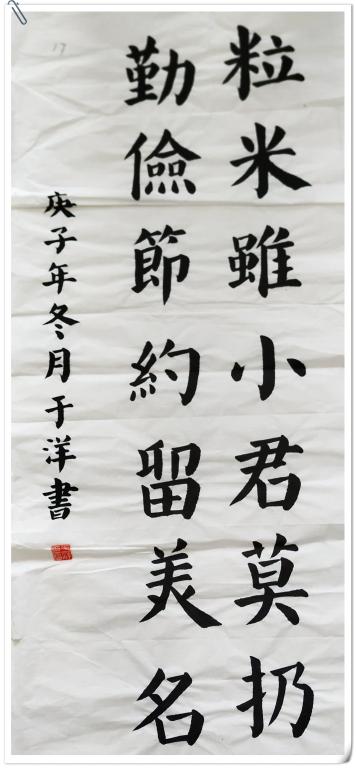 粒米雖小君莫扔
勤儉節約留美名
庚子年冬月于洋書
17